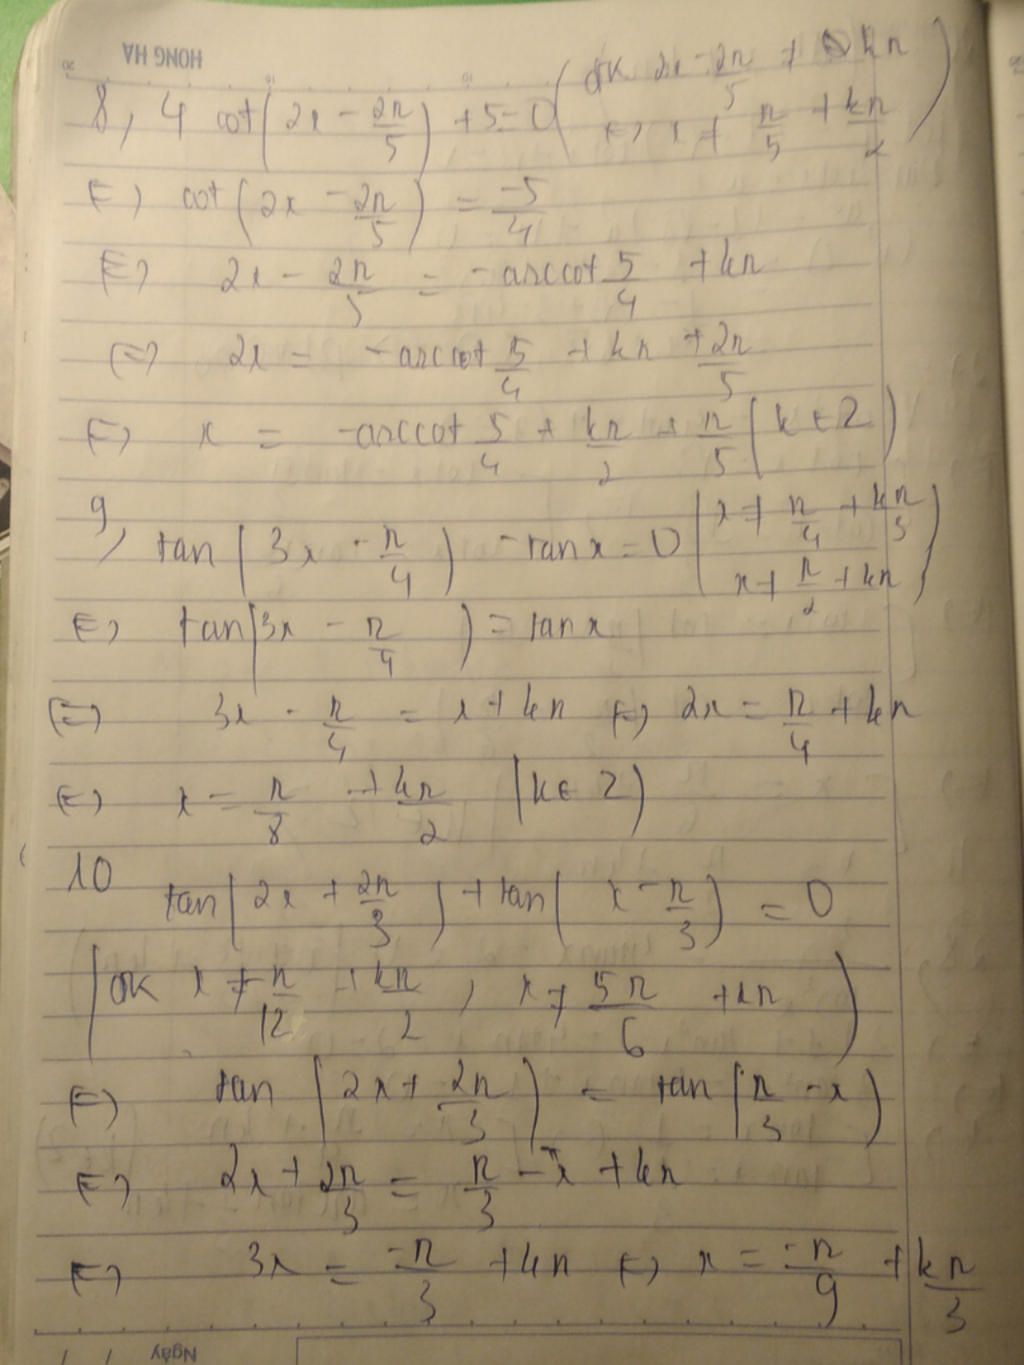 HONG HA
8, 4 cot(2x - 2π/5) + 5 = 0 (ĐK 2x - 2π/5 ≠ kπ
<=> x ≠ π/5 + kπ/2)
<=> cot(2x - 2π/5) = -5/4
<=> 2x - 2π/5 = -arccot 5/4 + kπ
<=> 2x = -arccot 5/4 + kπ + 2π/5
<=> x = -arccot 5/4 + kπ/2 + π/5 (k ∈ Z)
9, tan(3x - π/4) - tan x = 0 (x ≠ π/4 + kπ/3
x ≠ π/2 + kπ)
<=> tan(3x - π/4) = tan x
<=> 3x - π/4 = x + kπ <=> 2x = π/4 + kπ
<=> x = π/8 + kπ/2 (k ∈ Z)
10 tan(2x + 2π/3) + tan(x - π/3) = 0
(ĐK x ≠ -π/12 + kπ/2, x ≠ 5π/6 + kπ)
<=> tan(2x + 2π/3) = tan(π/3 - x)
<=> 2x + 2π/3 = π/3 - x + kπ
<=> 3x = -π/3 + kπ <=> x = -π/9 + kπ/3
Ngày